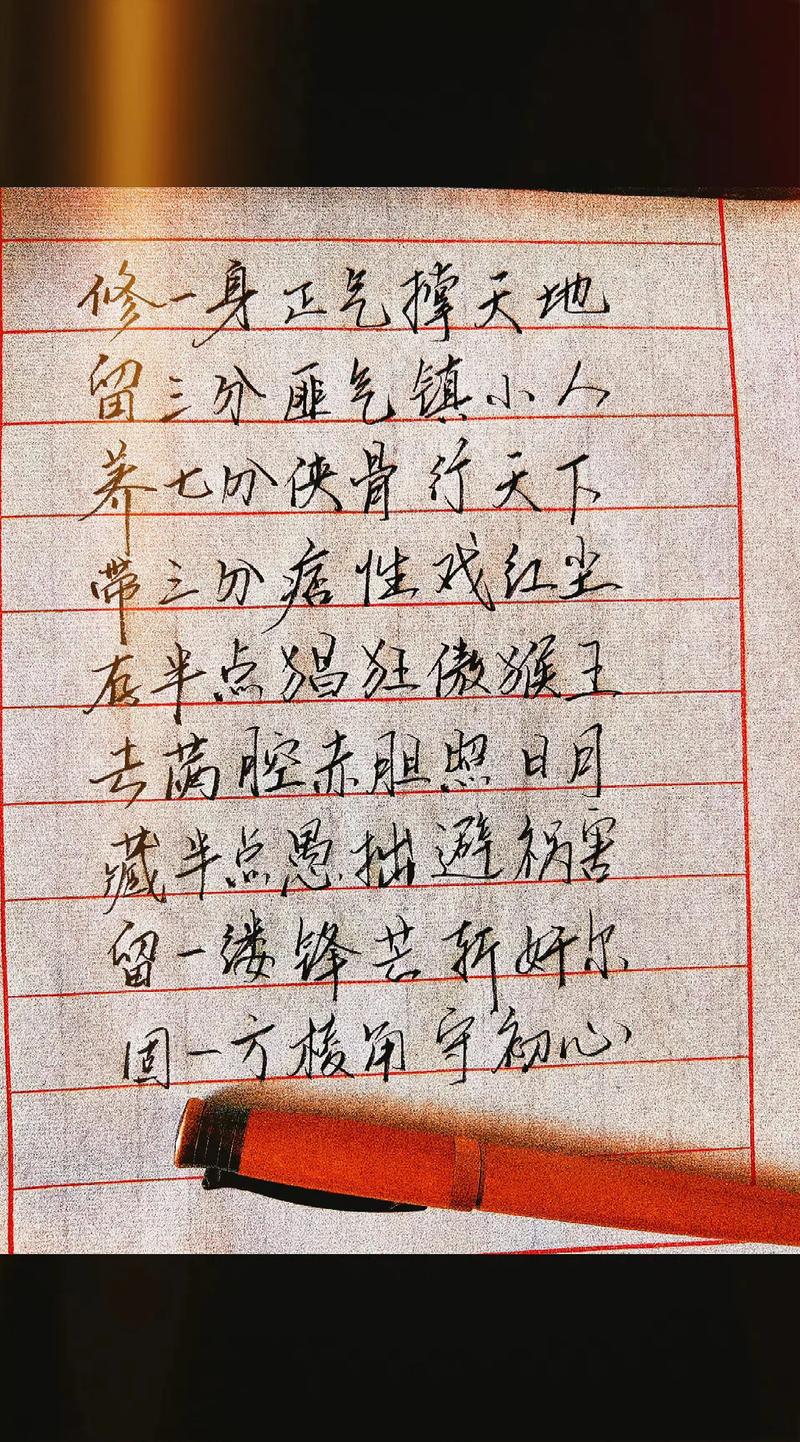 修一身正气撑天地
留三分匪气镇小人
养七分侠骨行天下
带三分痞性戏红尘
存半点猖狂傲猴王
去满腔赤胆照日月
藏半点愚拙避祸害
留一缕锋芒斩奸尔
固一方棱角守初心